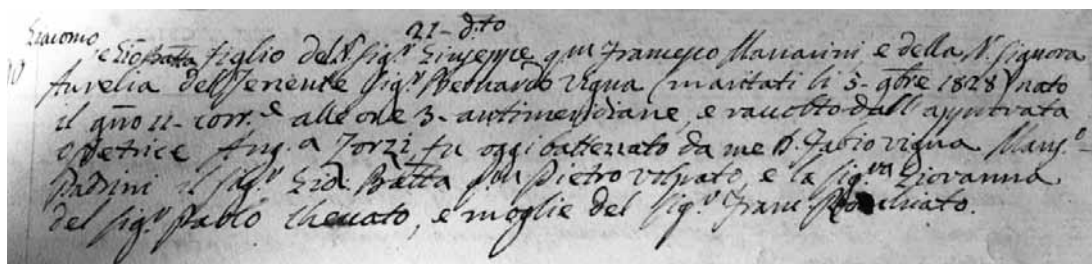 21 - d.to
Giacomo
e Gio Batta figlio del N. Sig.r Giuseppe qm Francesco e della N. Signora
Aurelia del Tenente Sig.r Bernardo Vigna (maritati li 5 - 9bre 1828) nato
il gno 11 - corr.e alle ore 3 - antimeridiane, e raccolto dall approvata
Ostetrice Ang.a Zorzi, fu oggi battezzato da me D. Fabio Vigna Mans.
Padrini il Sig.r Gio. Batta qm Pietro Volpato, e la Sig.ra Giovanna
del Sig.r Pablo, e moglie del Sig.r Franc